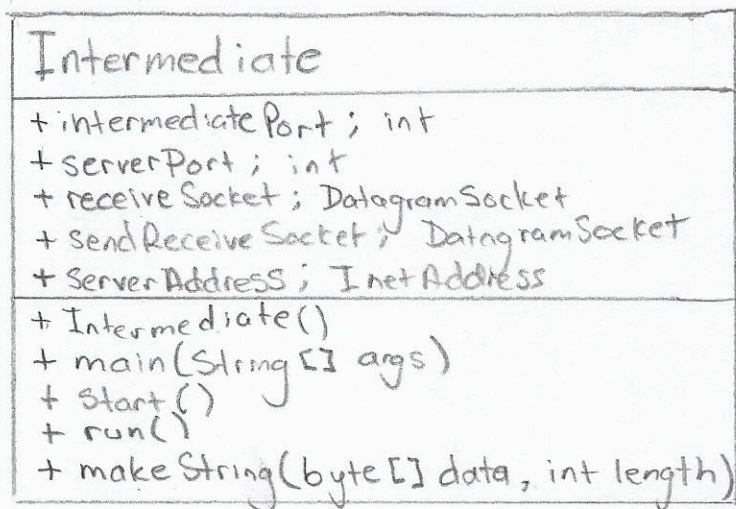 Intermediate
+ intermediatePort ; int
+ serverPort ; int
+ receiveSocket ; DatagramSocket
+ sendReceiveSocket ; DatagramSocket
+ serverAddress ; InetAddress
+ Intermediate()
+ main(String [] args)
+ start()
+ run()
+ makeString(byte [] data, int length)